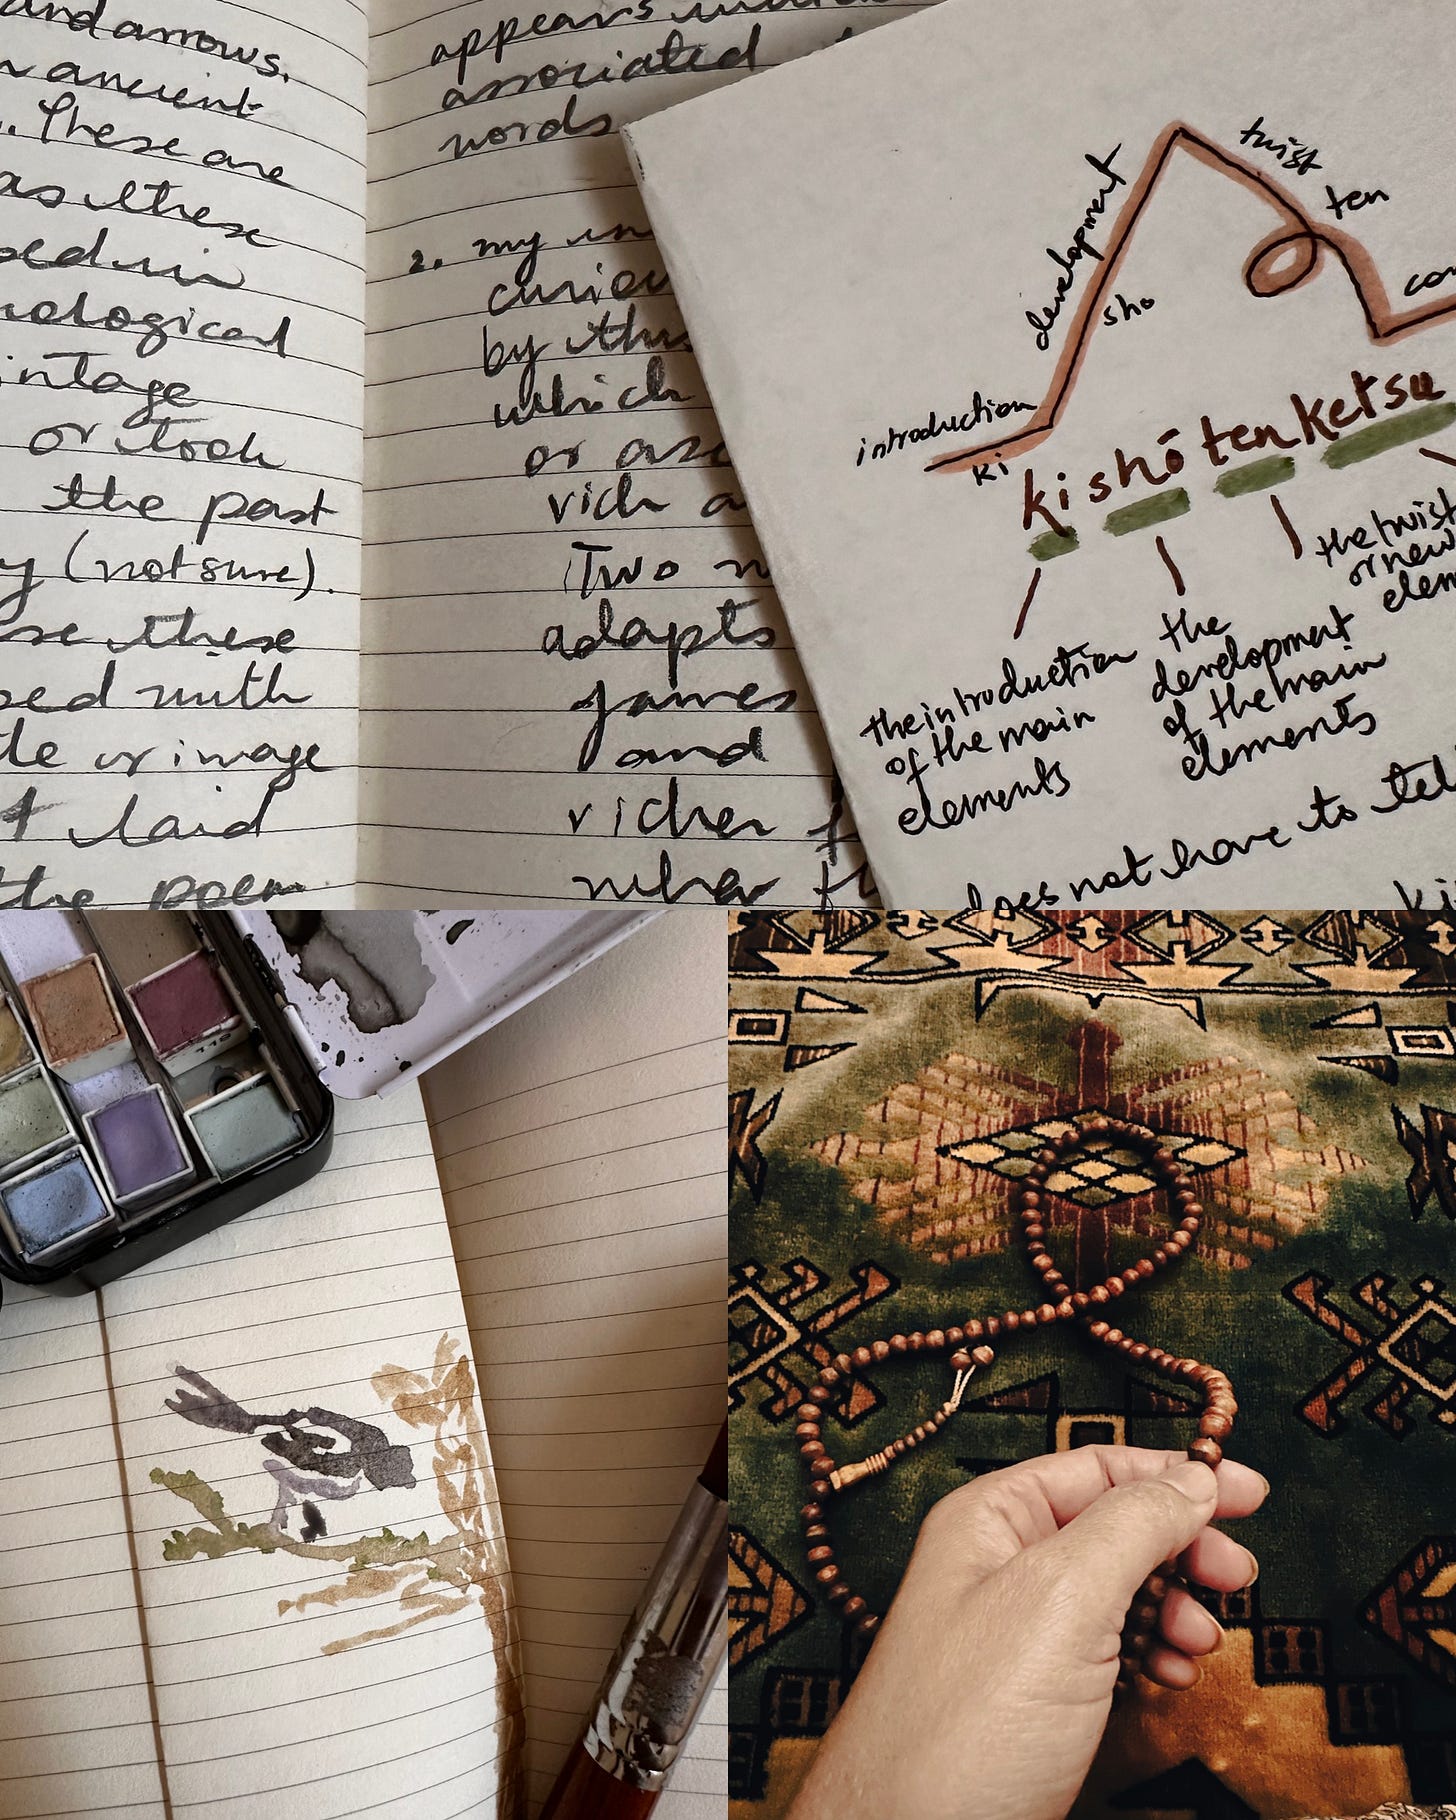 and arrows.
ancient
These are
as these
ological
intage
or took
the past
y (not sure).
se these
ped with
tle or image
t laid
the poem
appears
associated
words
2. my in
curiou
by this
which
or asc
rich a
Two n
adapts
James
and
richer f
when
twist
ten
development
sho
con
introduction
ki
kishōtenketsu
the twist
or new
elem
the introduction
of the main
elements
the
development
of the main
elements
does not have to tel
ki
116